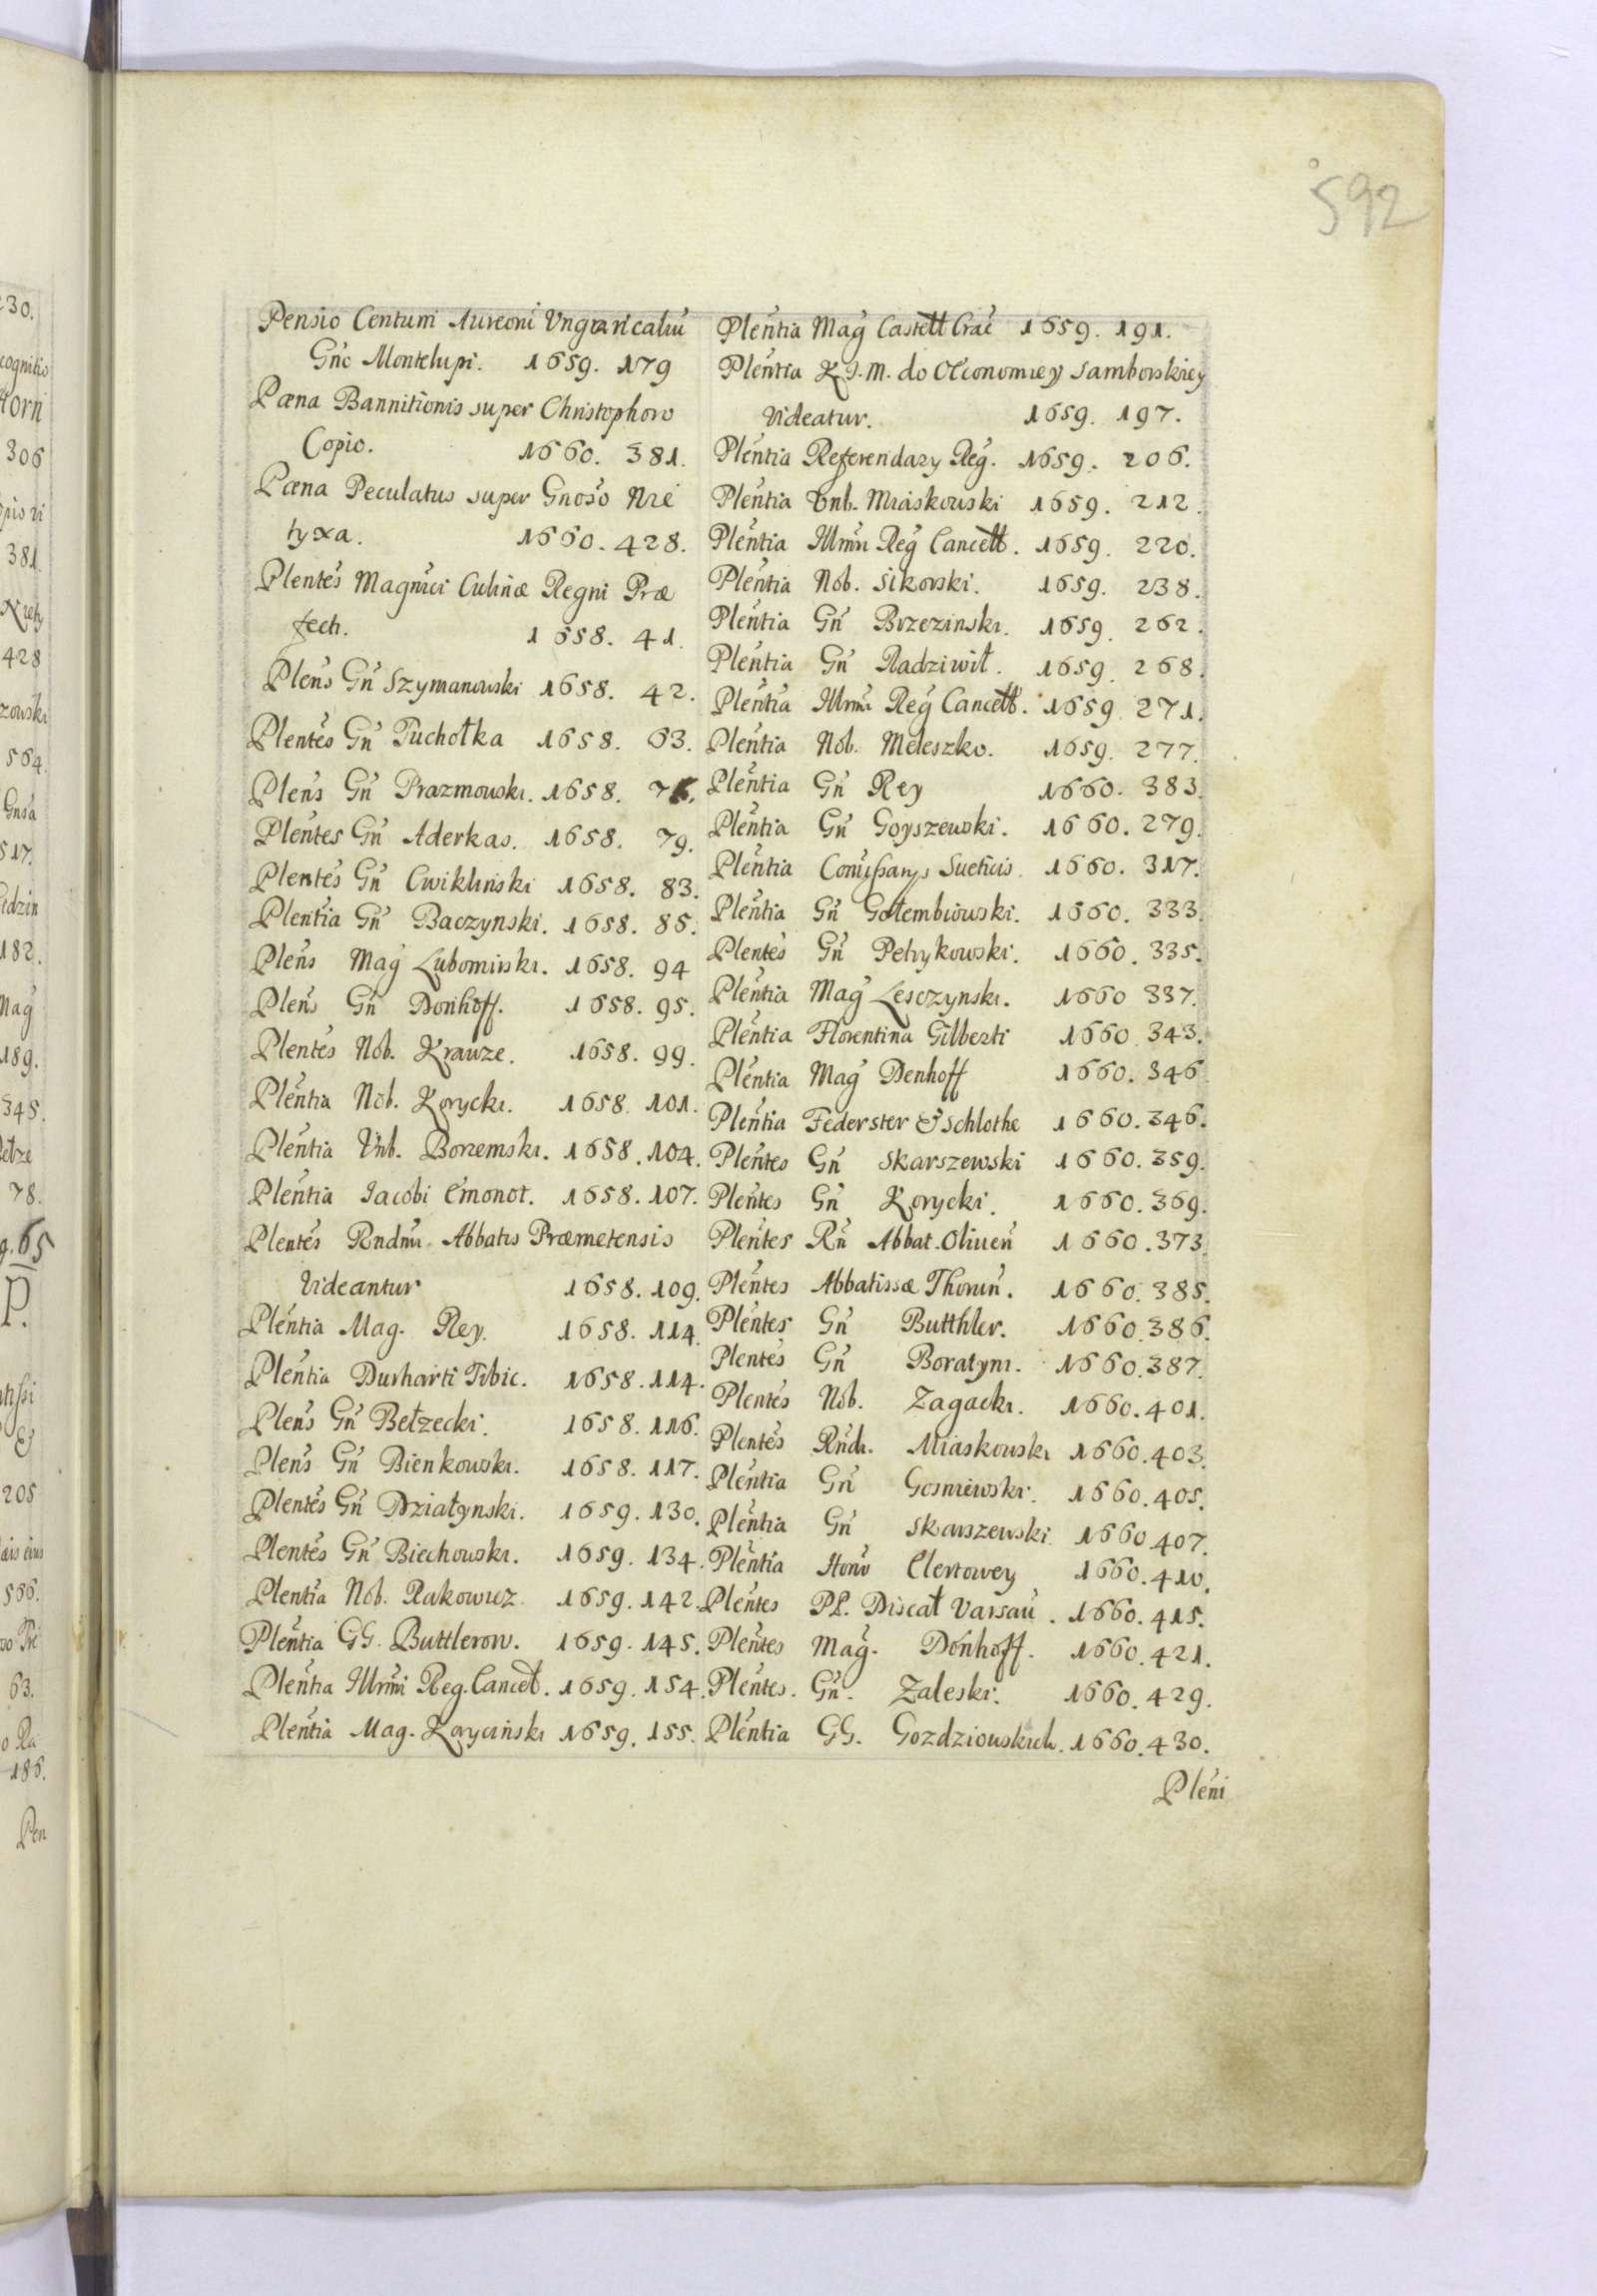 592
Pensio Centum Aureoru Ungaricaliu
Gnō Montelupi. 1659. 179
Pœna Bannitionis super Christophoro
Copio. 1660. 381.
Pœna Peculatus super Gnoso Nie
tyxa. 1660. 428.
Plentes Magnici Culinæ Regni Præ
fecti. 1658. 41.
Plens Gn Szymanowski 1658. 42.
Plentes Gn Tuchołka 1658. 63.
Plens Gn Prazmowski. 1658.
Plentes Gn Aderkas. 1658. 79.
Plentes Gn Cwikliński 1658. 83.
Plentia Gn Baczynski. 1658. 85.
Plens Mag Lubomirski. 1658. 94
Plens Gn Donhoff. 1658. 95.
Plentes Nob. Krauze. 1658. 99.
Plentia Nob. Korycki. 1658. 101.
Plentia Unb. Borzemski. 1658. 104.
Plentia Jacobi Emonot. 1658. 107.
Plentes Rndmi Abbatis Præmetensis
Videantur 1658. 109.
Plentia Mag. Rey. 1658. 114.
Plentia Durharti Tibic. 1658. 114.
Plens Gn Bełzecki. 1658. 116.
Plens Gn Bienkowski. 1658. 117.
Plentes Gn Działynski. 1659. 130.
Plentes Gn Biechowski. 1659. 134.
Plentia Nob. Rakowicz. 1659. 142.
Plentia GG. Buttlerow. 1659. 145.
Plentia Illrmi Reg. Cancell. 1659. 154.
Plentia Mag. Koryciński 1659. 155.
Plentia Mag Castell Crac 1659. 191.
Plentia K J. M. do Œconomiey Samborskiey
Videatur. 1659. 197.
Plentia Referendary Reg. 1659. 206.
Plentia Gnb. Miaskowski 1659. 212.
Plentia Illrmi Reg Cancell. 1659. 220.
Plentia Nob. Sikorski. 1659. 238.
Plentia Gn Brzezinski. 1659. 262.
Plentia Gn Radziwił. 1659. 268.
Plentia Illrmi Reg Cancell. 1659. 271.
Plentia Nob. Meleszko. 1659. 277.
Plentia Gn Rey 1660. 383.
Plentia Gn Goyszewski. 1660. 279.
Plentia Comissarys Sueticis. 1660. 317.
Plentia Gn Gołembiowski. 1660. 333.
Plentes Gn Petrykowski. 1660. 335.
Plentia Mag Lesczynski. 1660 337.
Plentia Florentina Gilberti 1660. 343.
Plentia Mag Denhoff 1660. 346
Plentia Federster & Schlothe 1660. 346.
Plentes Gn Skarszewski 1660. 359.
Plentes Gn Korycki. 1660. 369.
Plentes Rn Abbat. Oliuen 1660. 373.
Plentes Abbatissæ Thorun. 1660. 385.
Plentes Gn Butthler. 1660. 386.
Plentes Gn Boratyni. 1660. 387.
Plentes Nob. Zagacki. 1660. 401.
Plentes Rndi. Miaskowski 1660. 403.
Plentia Gn Gosniewski. 1660. 405.
Plentia Gn Skarszewski. 1660. 407.
Plentia Clertowey 1660. 410.
Plentes PP. Discal Varsau. 1660. 415.
Plentes Mag. Dönhoff. 1660. 421.
Plentes. Gn. Zaleski. 1660. 429.
Plentia GG. Gozdziowskich. 1660. 430.
Pleni